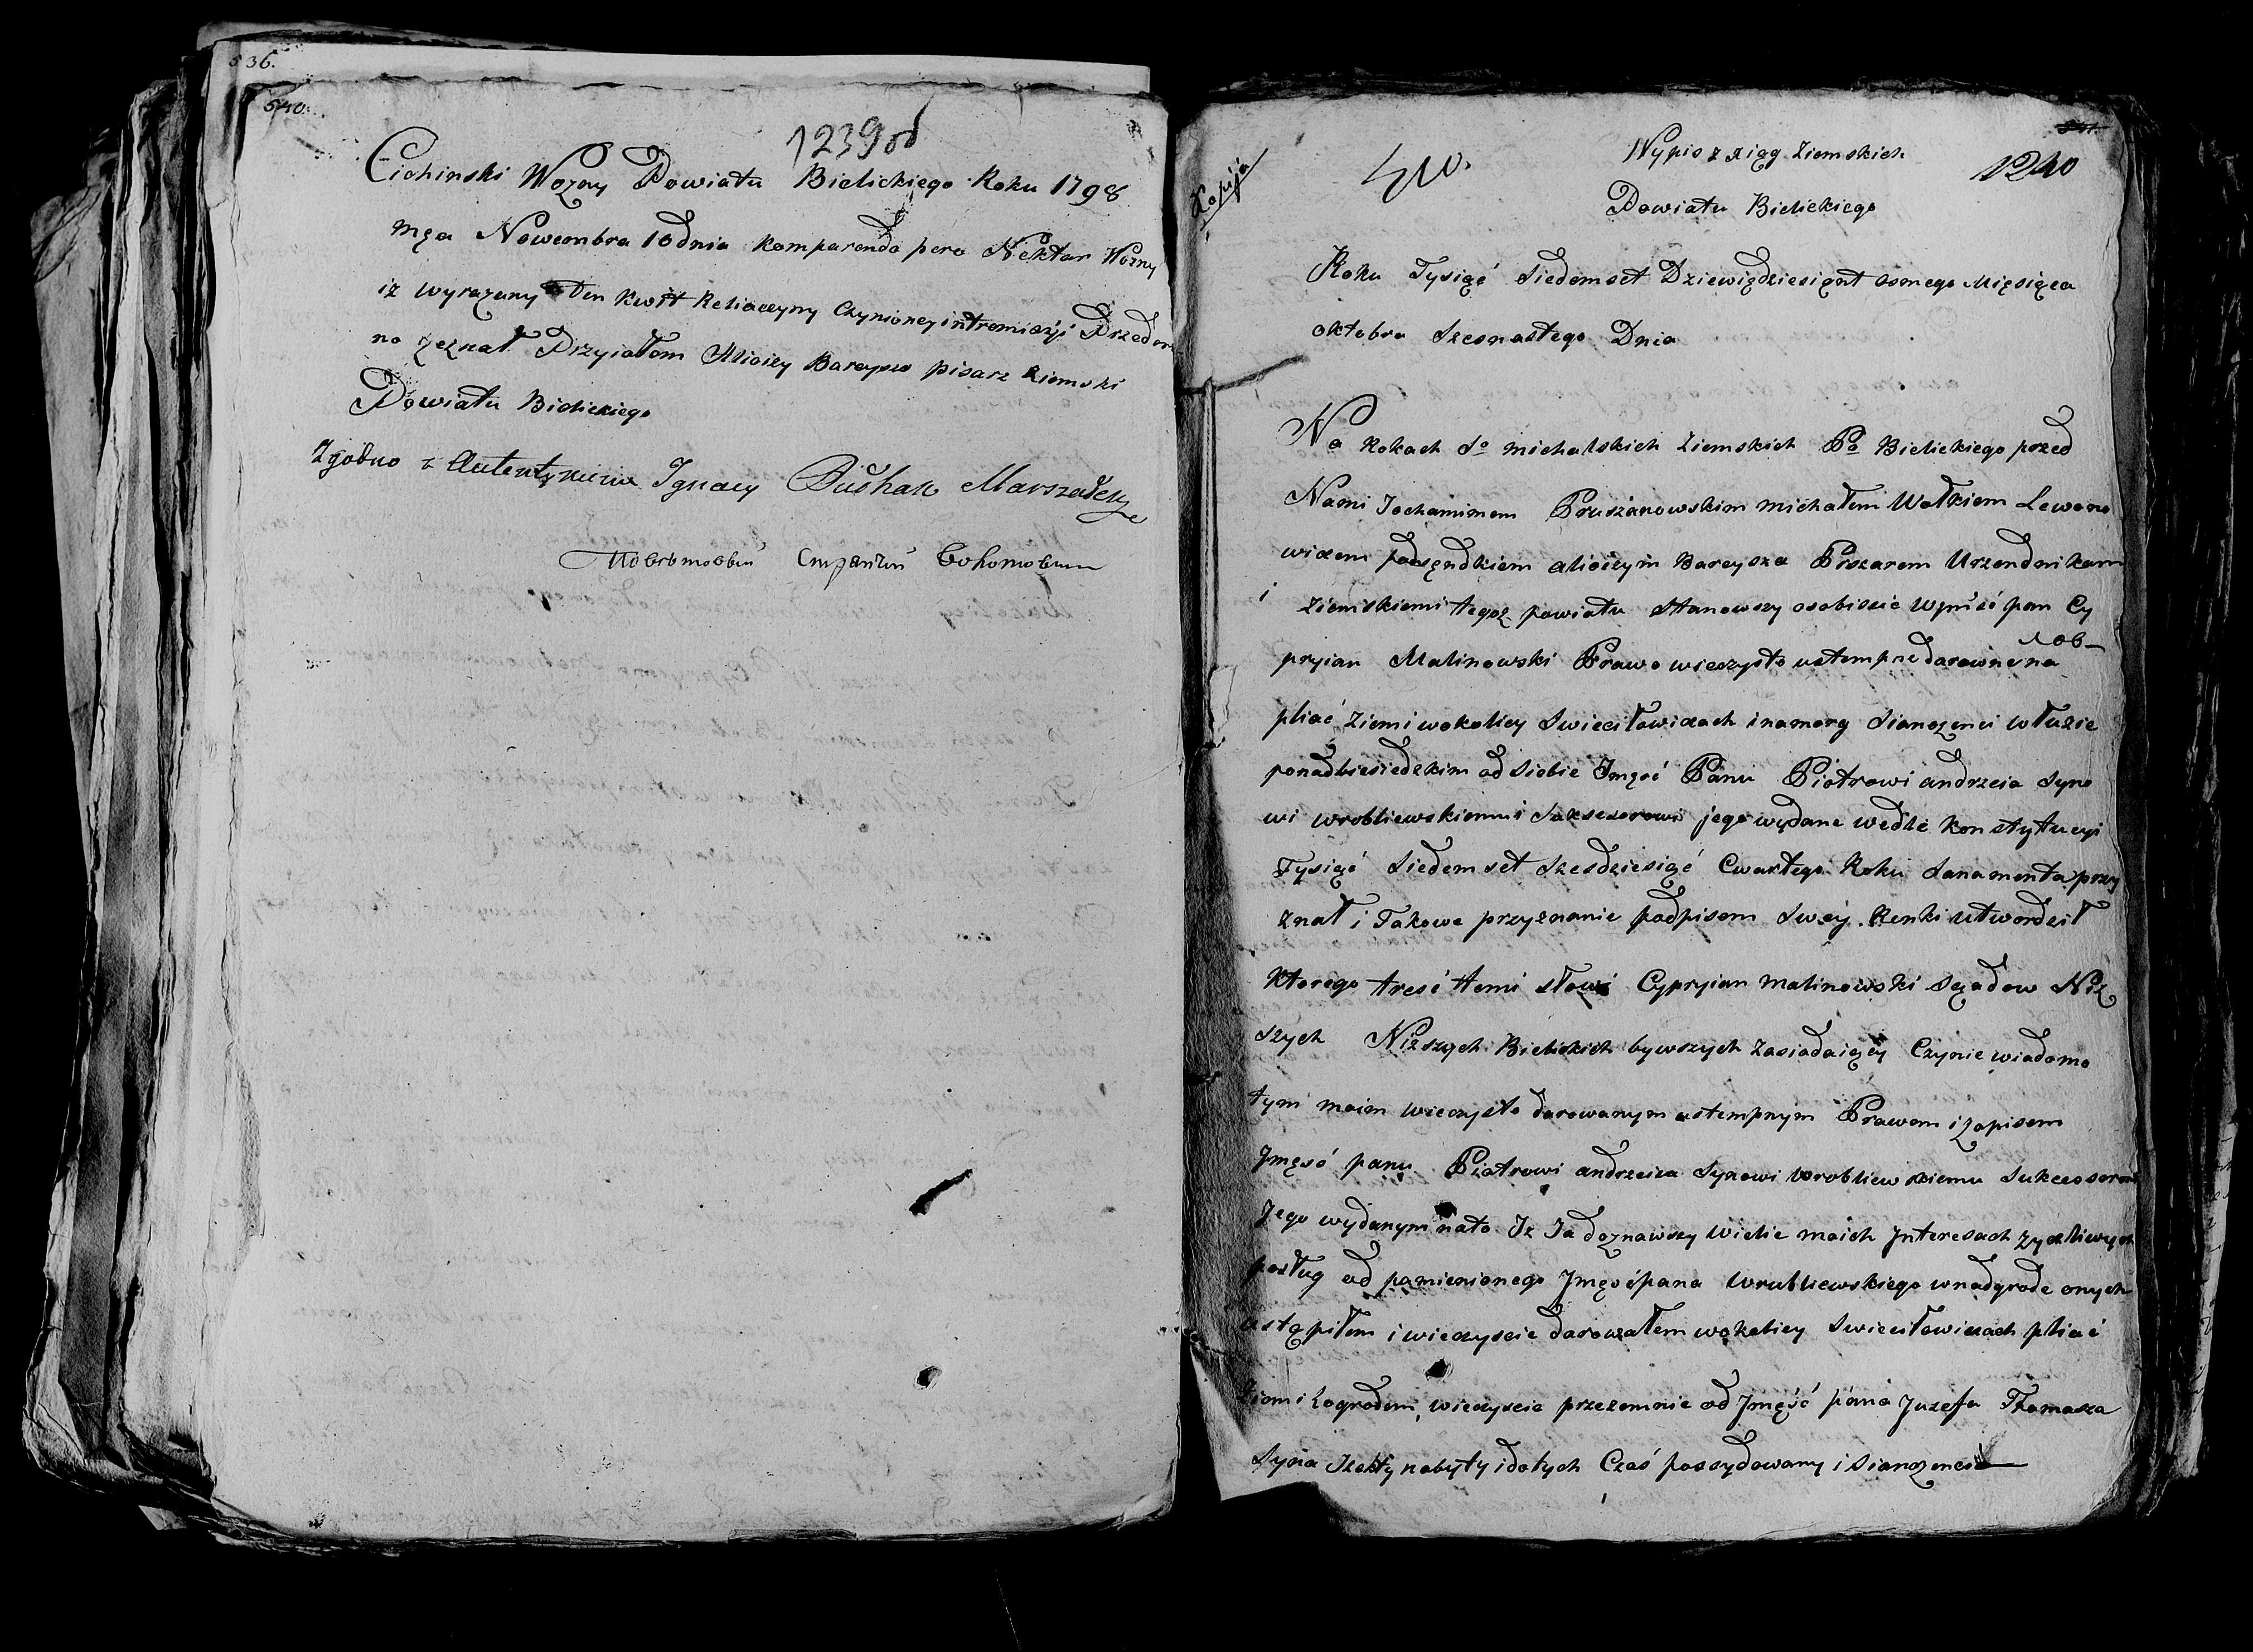 536.
540.
1239 об
Cichinski Wozny Powiatu Bielickiego Roku 1798
Mca Nowembra 10 dnia komparendo pero Nektar Wozny
iz wyrazany ten kwit Reliacyiny Czynioney intromissyi
no zeznał Przyiołem Alioizy Bareysza pisarz Ziemski
Powiatu Bielickiego
Zgodno z Autentykiem Ignacy Puchak Marszałek
Kopija
1240
Wypis z Xiąg Ziemskich
Powiatu Bielickiego
Roku Tysiąć Siedemset Dziewiędziesiąnt osmego Miesiąca
oktobra Szesnastego Dnia
Na Rokach So michalskich Ziemskich Po Bielickiego przed
Nami Jochamimem Pruszanowskim michałem Wołkiem Lewono
wiczem podsęndkiem alioizym Bareysza Piszarem Urzendnikam
i Ziemskiemi tegoz powiatu Stanowszy osobiscie Jmść pan Cy
pryian Malinowski Prawo wieczysto ustempne darowne na
pliać Ziemi wokolicy Swieciłowiczach i na morg Sianozenci włuzie
ponadbiesiedzkim od Siebie Jmość Panu Piotrowi andrzeia Syno
wi wrobliewskiemu i Suksesorowi jego wydane wedle konstytucyi
Tysiąć Siedemset Szesdziesiąć Cwartego Roku Sanamenta przy
znał i Takowe przyznanie podpisem Swey Renki utwordził
Ktorego treść temi słowi Cypryian Malinowski Sązadow Niz
szych Nizszych Bielickich bywszych Zasiadaiący Czynie wiadomo
tym moim wieczysto darowanym ustempnym Prawem i zapisem
Jmęsć panu Piotrowi andrzeiza Synowi wrobliewskiemu Sukcessorom
Jego wydanym nato Iz Ja doznawszy Wielie moich Interesach zyczliwych
posług od pomienionego Jmęść pana Wrubliewskiego wnadgrode onych
ustąpiłem i wieczyscie darowałem wokolicy Swieciłowiczach pliać
Ziemi Zogrodem, wieczyscie przezemnie od Jmęść pana Juzefa Thomasza
Syna Izekty nabyty i dotych Czas possydowany i Sianozenci